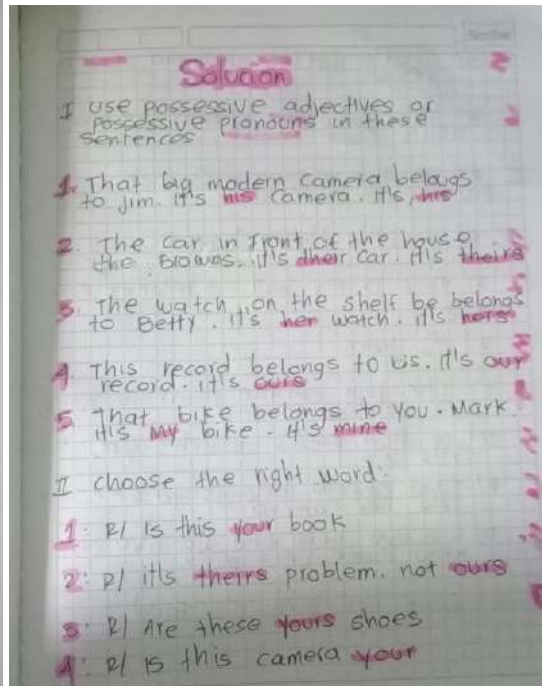 Solucion
I use possessive adjectives or
possessive pronouns in these
sentences
1. That big modern camera belongs
to Jim. It's his camera. It's, his
2. The car in front of the house
the Browns. it's their car. it's theirs
3. The watch on the shelf be belongs
to Betty. it's her watch. it's hers
4. This record belongs to us. it's our
record. it's ours
5. That bike belongs to you. Mark.
it's my bike. It's mine
II choose the right word:
1: R/ Is this your book
2: R/ it's theirs problem. not ours
3: R/ Are these yours shoes
4: R/ is this camera your